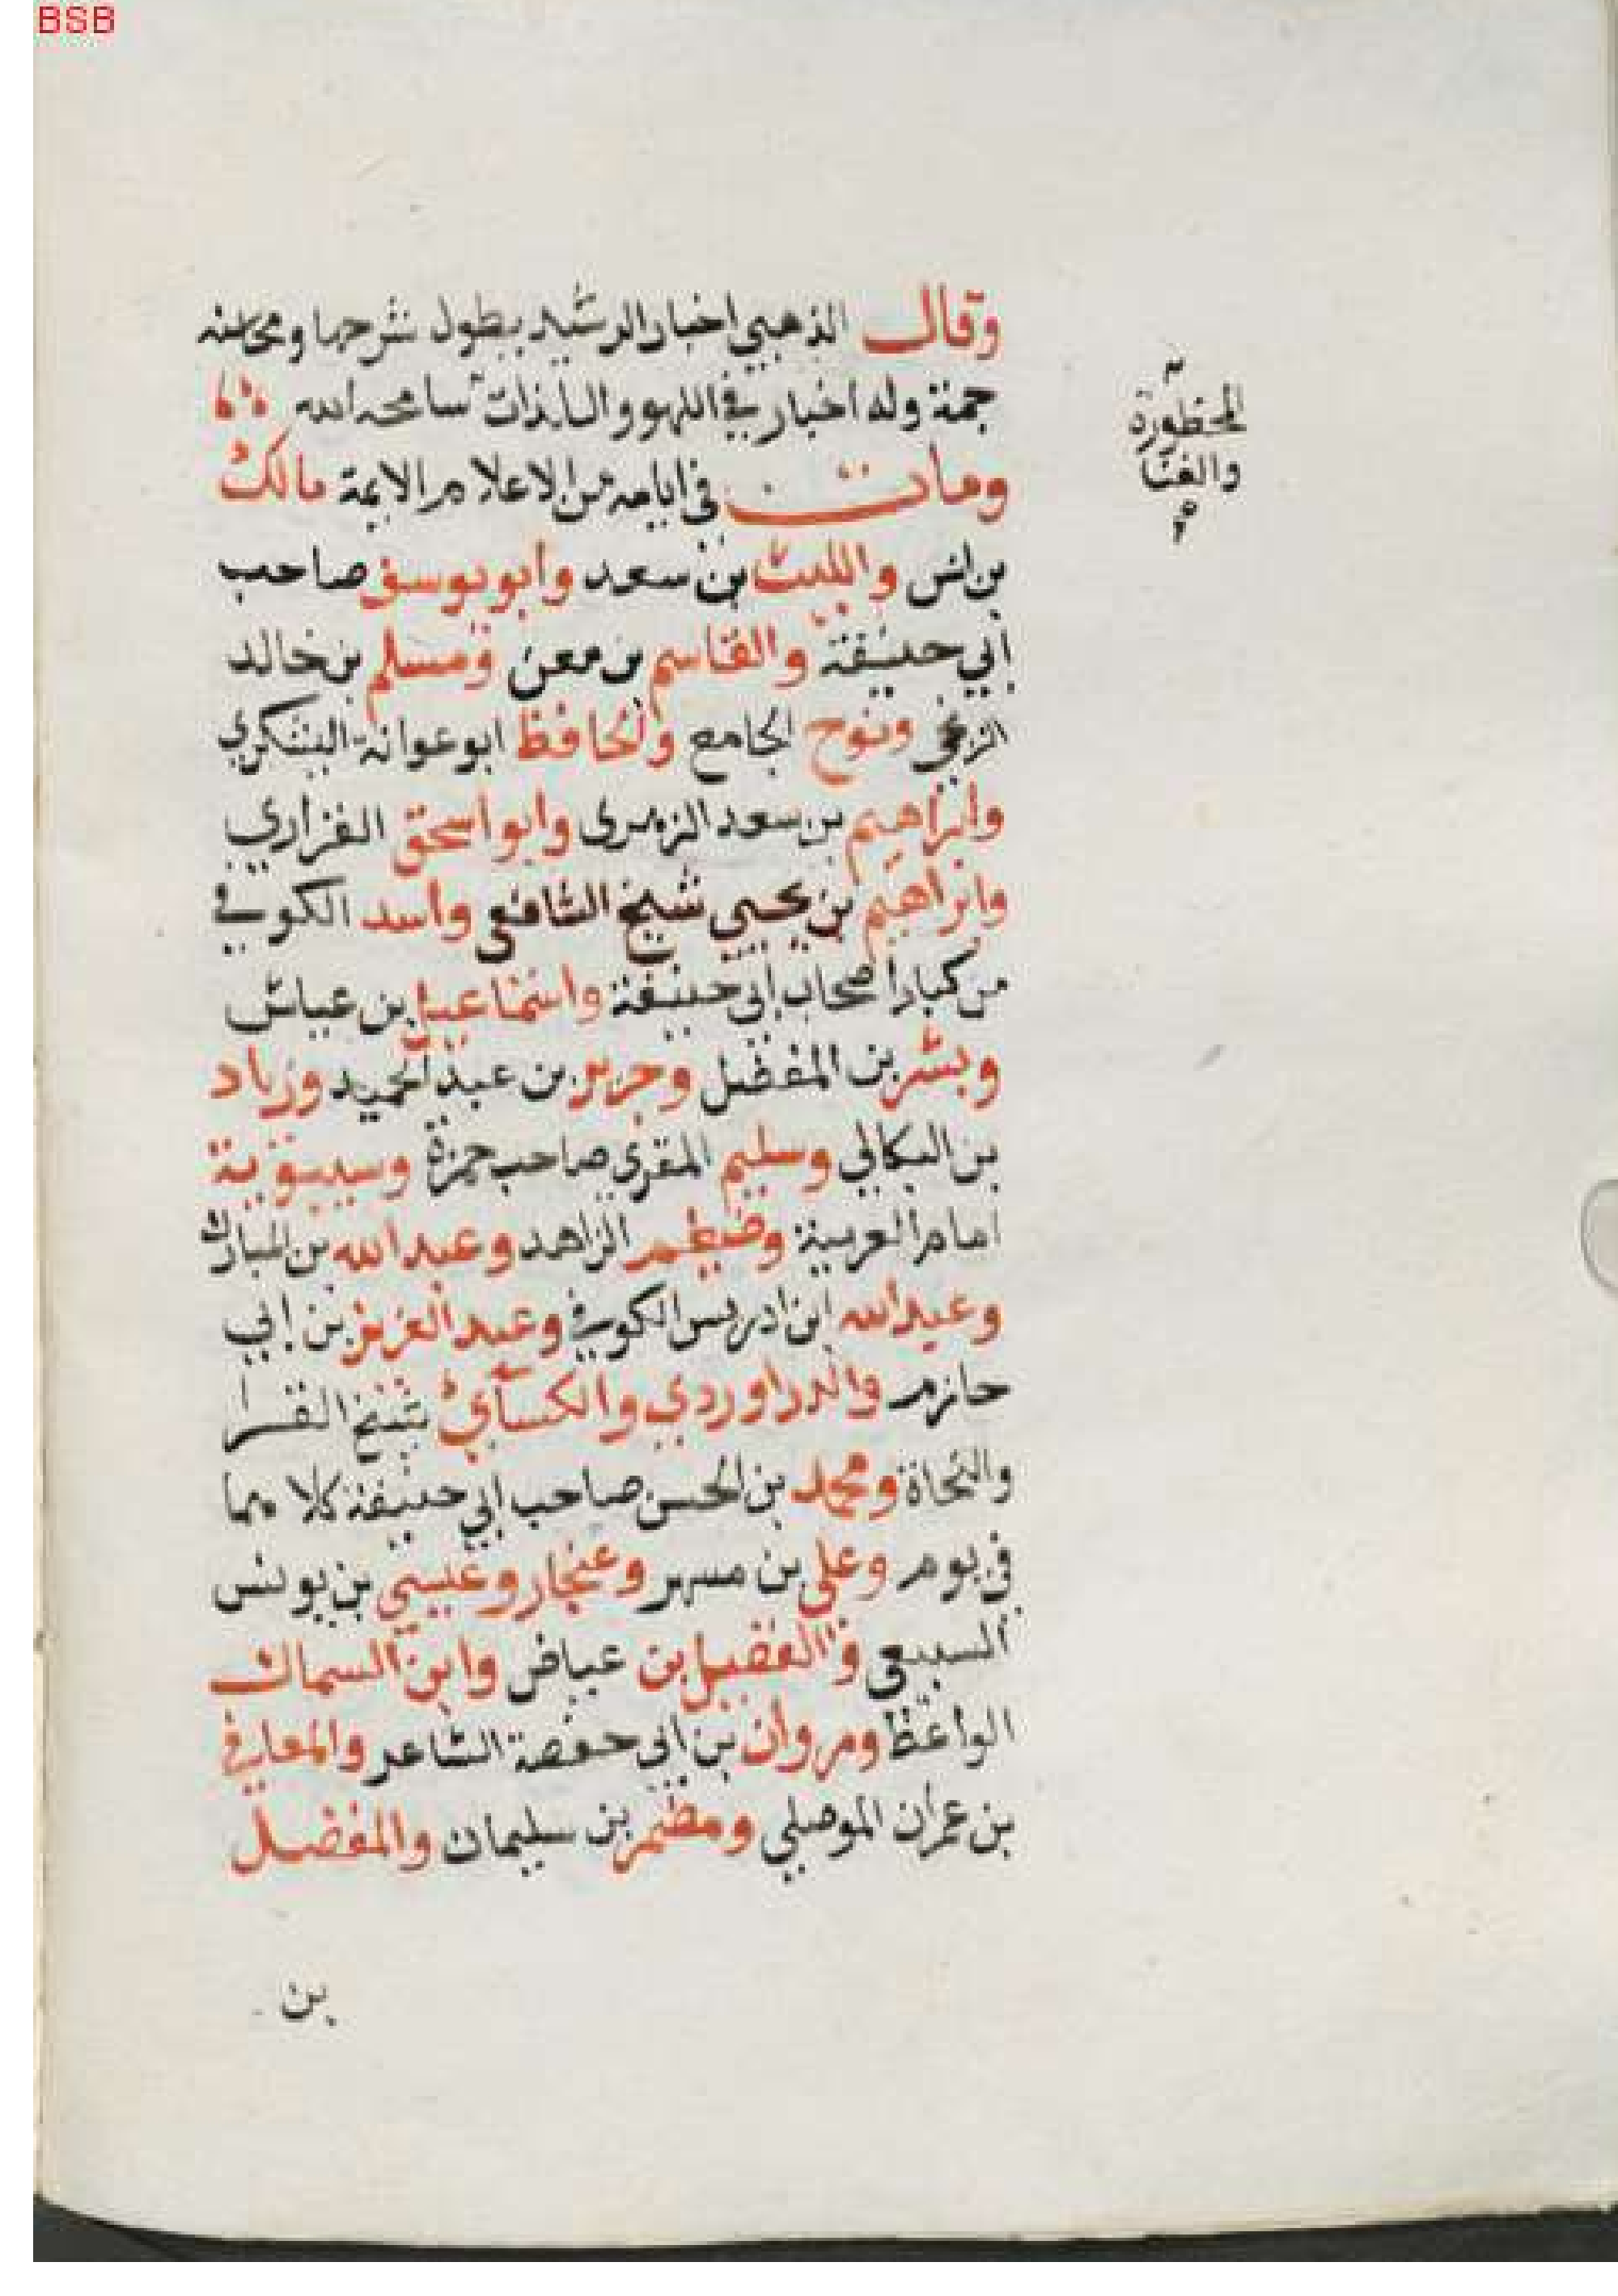 BSB
وقال الذهبي اخبار الرشيد يطول شرحها ومحاسنه
جمة وله اخبار في اللهو واللذات سامحه الله
المحظورة
والغنا
ومات في ايامه من الاعلام الايمة مالك
بن انس والليث بن سعد وأبو يوسف صاحب
أبي حنيفة والقاسم بن معن ومسلم بن خالد
الزنجي ونوح الجامع والحافظ ابو عوانة اليشكري
وابراهيم بن سعد الزهري وابو اسحق الفزاري
وابراهيم بن يحيي شيخ الشافعي واسد الكوفي
من كبار أصحاب أبي حنيفة واسماعيل بن عياش
وبشر بن المفضل وجرير بن عبد الحميد وزياد
بن البكالي وسليم المقري صاحب حمزة وسيبوية
امام العربية وضيغم الزاهد وعبد الله بن المبارك
وعبد الله ابن ادريس الكوفي وعبد العزيز بن أبي
حازم والدراوردي والكسآي شيخ القرا
والنحاة ومحمد بن الحسن صاحب ابي حنيفة كلاهما
في يوم وعلي بن مسهر وغنجار وعيسي بن يونس
السبيعي والفضيل بن عياض وابن السماك
الواعظ ومروان بن أبي حفصة الشاعر والمعافي
بن عمران الموصلي ومعتمر بن سليمان والمفضل
بن